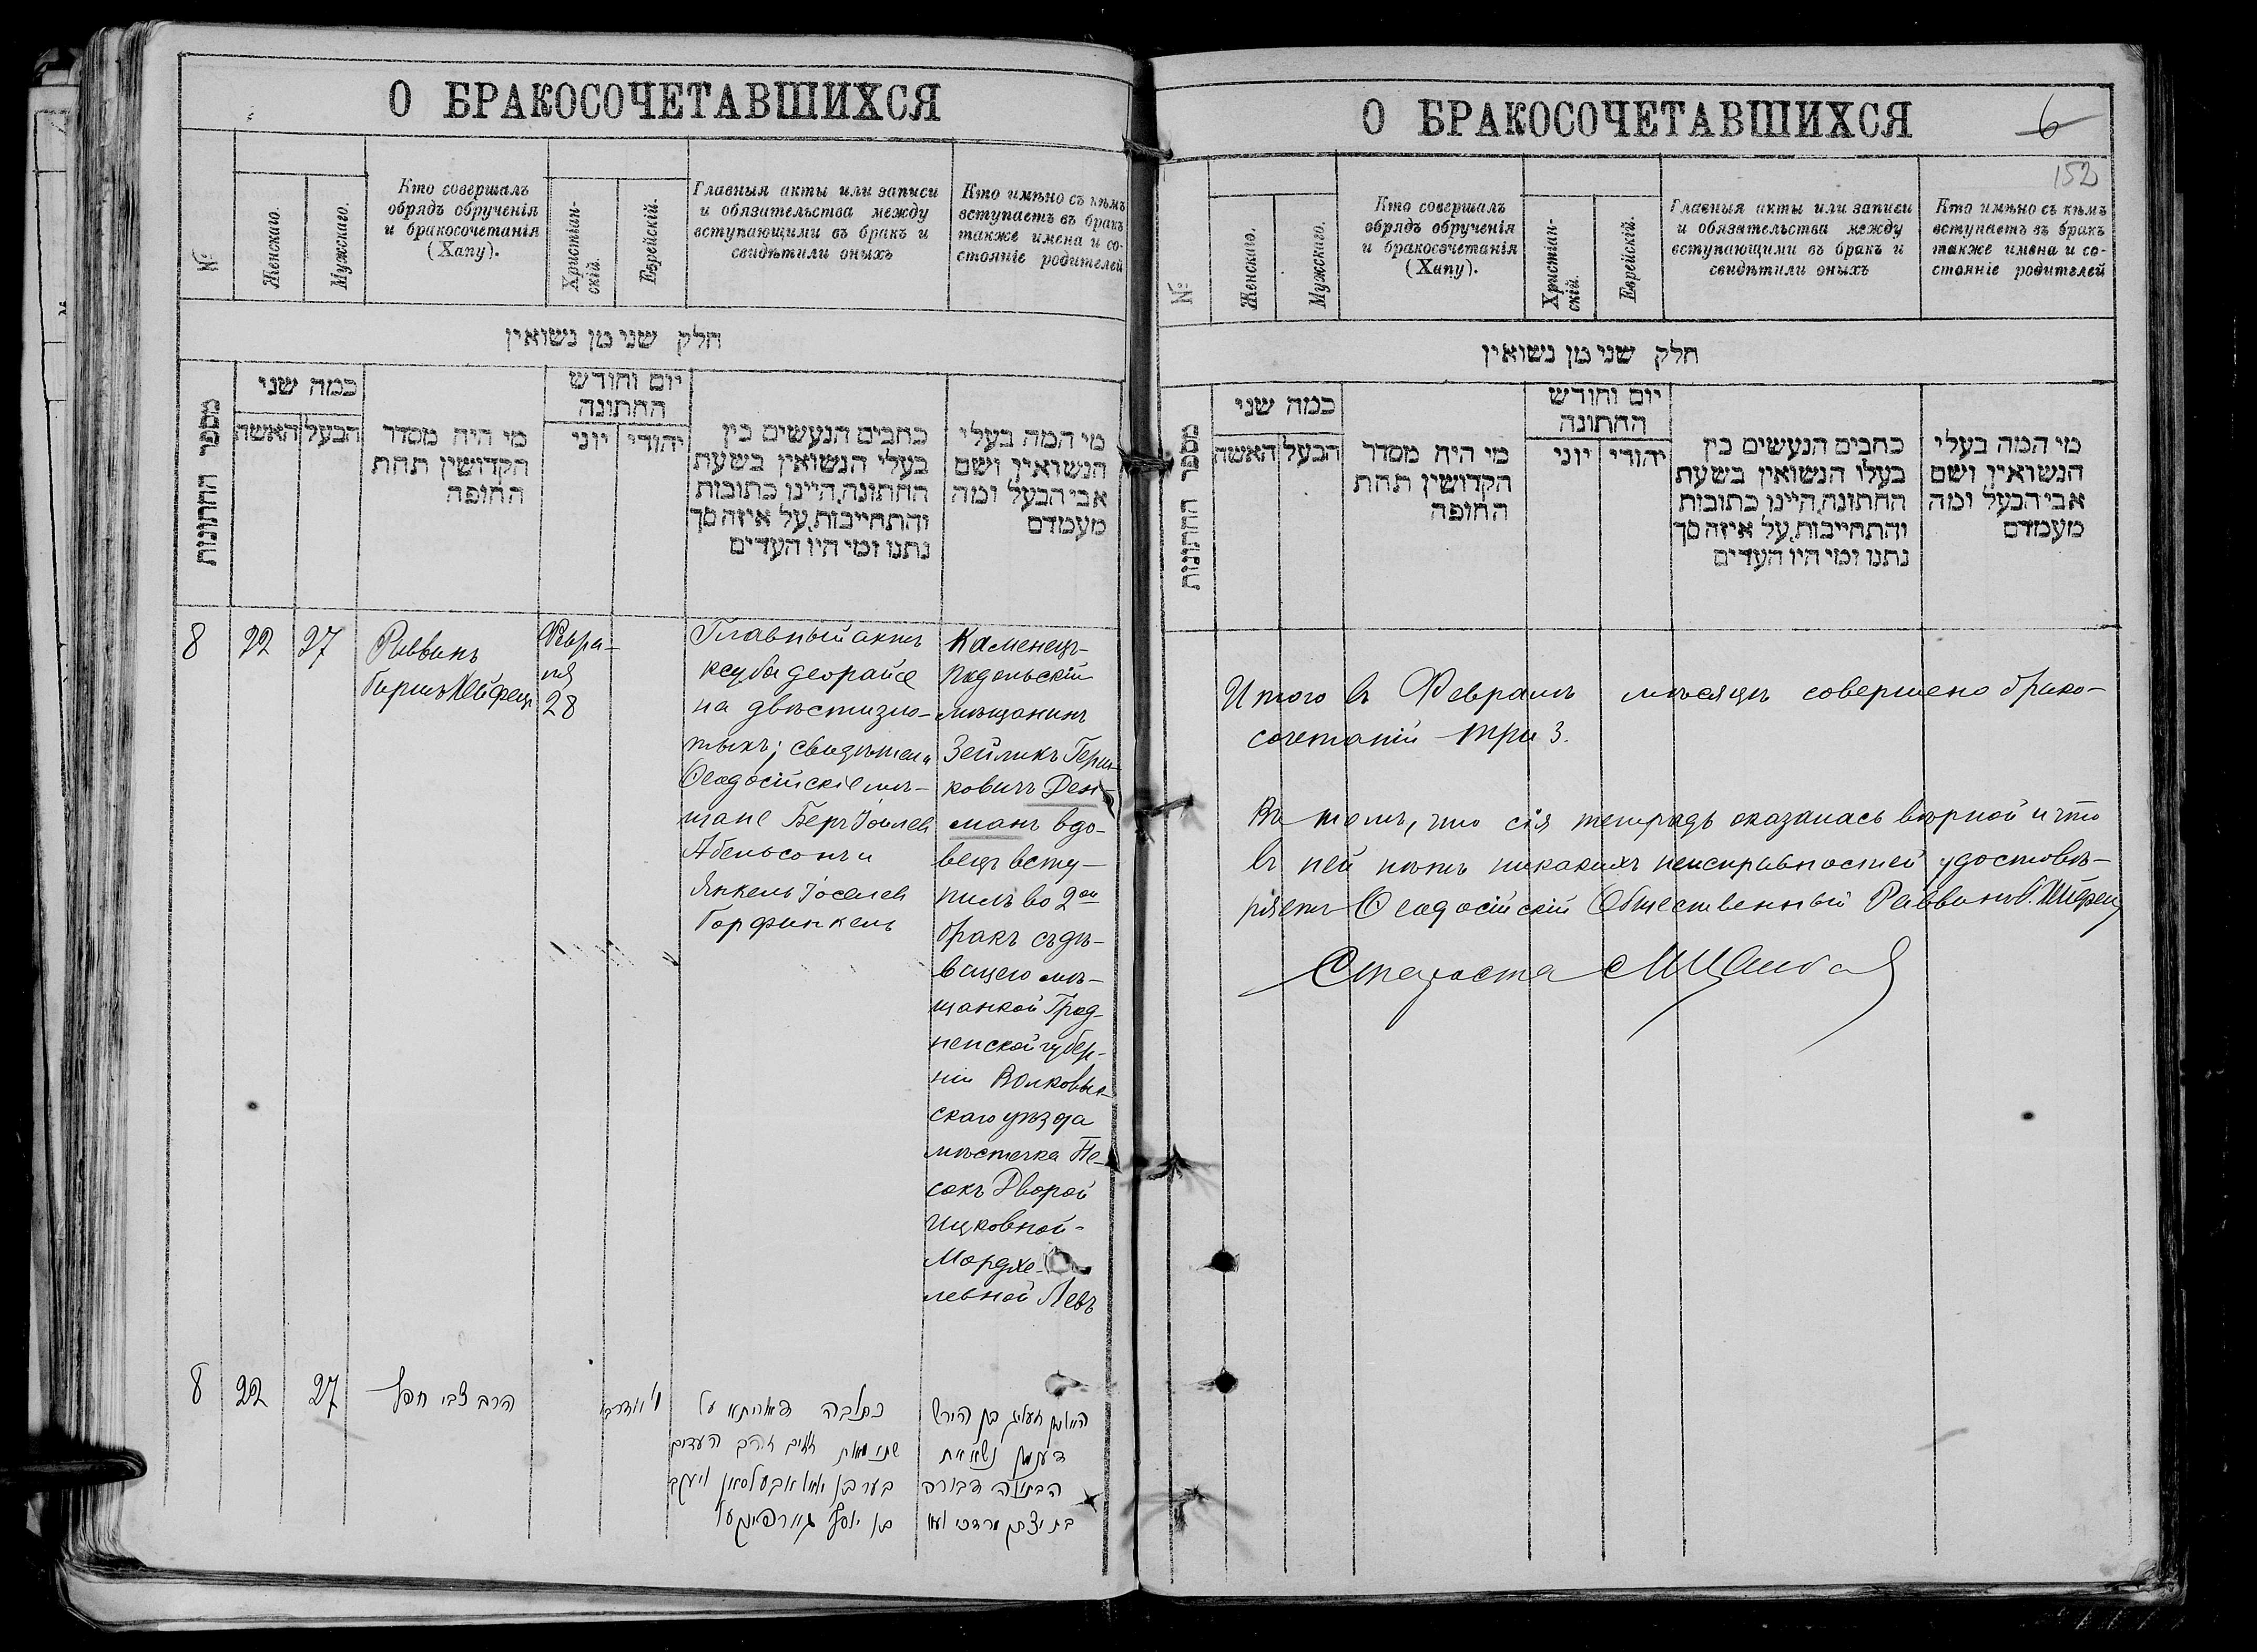 О БРАКОСОЧЕТАВШИХСЯ
№
Женскаго.
Мужскаго.
Кто совершалъ
обрядъ обрученія
и бракосочетанія
(Хапу).
Христіан-
скій.
Еврейскій.
Главныя акты или записи
и обязательства между
вступающими въ бракъ и
свидѣтили оныхъ
Кто имѣно съ кѣмъ
вступаетъ въ бракъ
также имена и со-
стояніе родителей
חלק שני מן נשואין
מספר החתונות
כמה שני
האשה
הבעל
מי היה מסדר
הקדושין תחת
החופה
יום וחודש
החתונה
יוני
יהודי
כתבים הנעשים בין
בעלי הנשואין בשעת
החתונה, היינו כתובות
והתחייבות, על איזה סך
נתנו ומי היו העדים
מי המה בעלי
הנשואין ושם
אבי הבעל ומה
מעמדם
8
22
27
Раввинъ
Гиршъ Хейфецъ
Февра-
ля
28
Главный актъ
ксуба деорайсе
на двѣсти зло-
тыхъ; свидѣтели
Ѳеодосійскіе мѣ-
щане Беръ Іоилев
Абельсонъ и
Янкель Іоселев
Горфинкель
Каменецъ-
Подольскій
мѣщанинъ
Зейликъ Герш-
ковичъ Ден-
манъ вдо-
вецъ всту-
пилъ во 2ой
бракъ съ дѣ-
вицею мѣ-
щанкой Грод-
ненской губер-
ніи Волковы-
скаго уѣзда
мѣстечка Пе-
сокъ Дворой
Ицковной-
Мордхе-
левной Левъ
8
22
27
הרב צבי חפץ
כתובה דאורייתא על
שתי מאות זהב העדים
בער בן אבעלסאן ויעקב
בן יוסף גורפינקעל
זעליג בן הירש
דענמן נשא את
הבתולה דבורה
בת יצחק מרדכי לעוו
О БРАКОСОЧЕТАВШИХСЯ
6
152
№
Женскаго.
Мужскаго.
Кто совершалъ
обрядъ обрученія
и бракосочетанія
(Хапу).
Христіан-
скій.
Еврейскій.
Главныя акты или записи
и обязательства между
вступающими въ бракъ и
свидѣтили оныхъ
Кто имѣно съ кѣмъ
вступаетъ въ бракъ
также имена и со-
стояніе родителей
חלק שני מן נשואין
מספר החתונות
כמה שני
האשה
הבעל
מי היה מסדר
הקדושין תחת
החופה
יום וחודש
החתונה
יוני
יהודי
כתבים הנעשים בין
בעלו הנשואין בשעת
החתונה, היינו כתובות
והתחייבות, על איזה סך
נתנו ומי היו העדים
מי המה בעלי
הנשואין ושם
אבי הבעל ומה
מעמדם
Итого въ Февралѣ мѣсяцѣ совершено брако-
сочетаній три 3.
Въ томъ, что сія тетрадь оказалась вѣрной и что
въ ней нѣтъ никакихъ неисправностей удостовѣ-
ряетъ Ѳеодосійскій Общественный Раввинъ Г. Хейфецъ
Староста